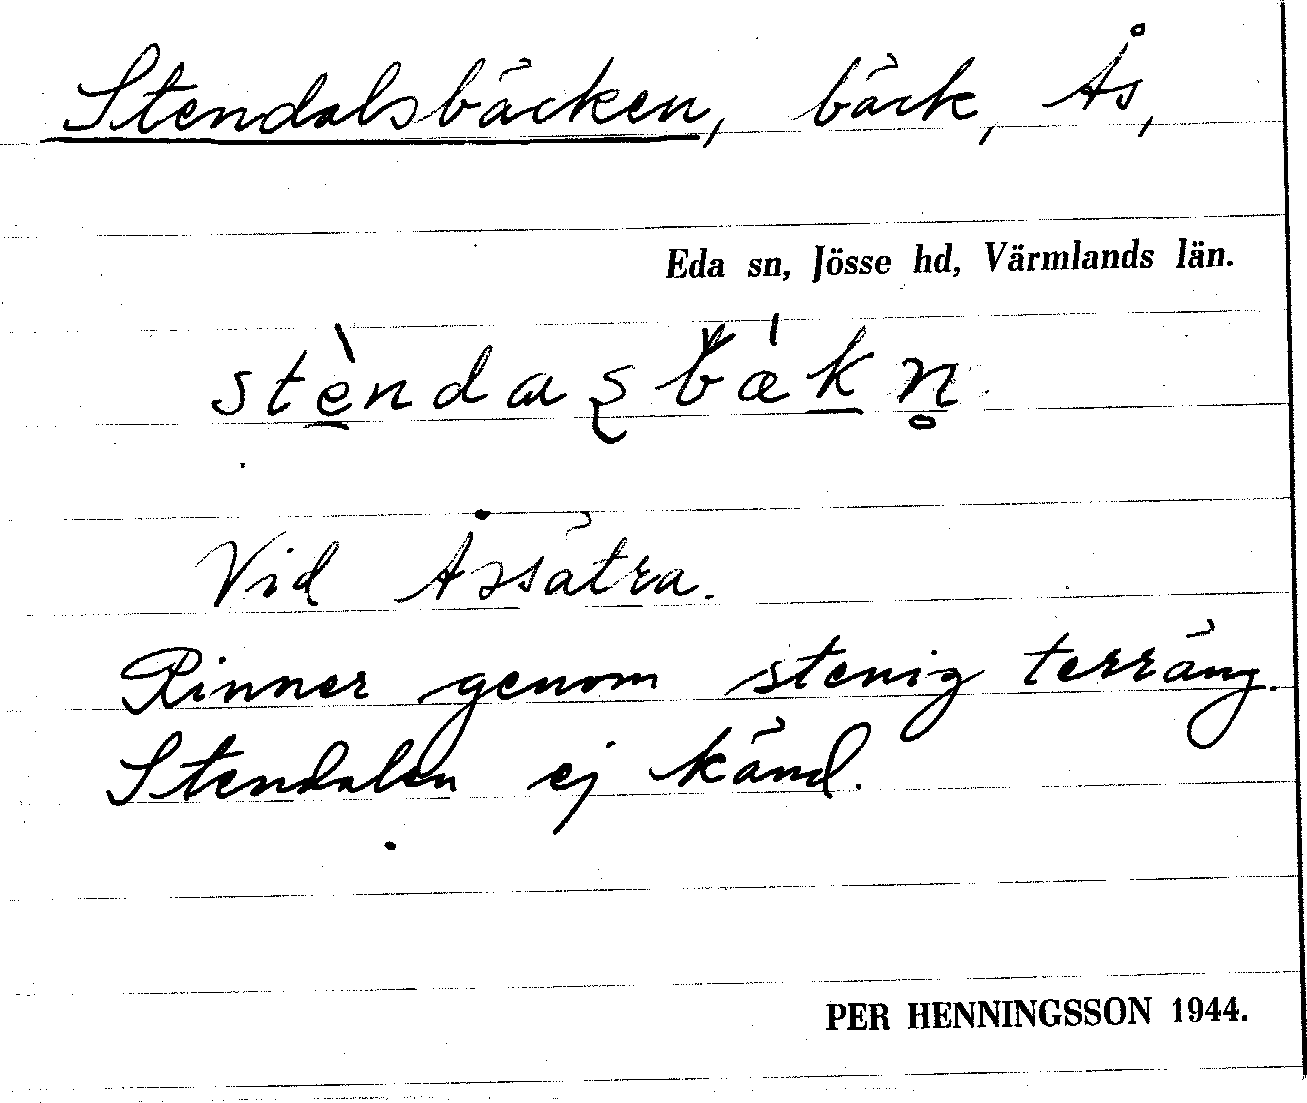 Stendalsbäcken, bäck, Ås,
Eda sn, Jösse hd, Värmlands län.
stèndaʂbǽkn̥
Vid Åssätra.
Rinner genom stenig terräng.
Stendalen ej känd.
PER HENNINGSSON 1944.